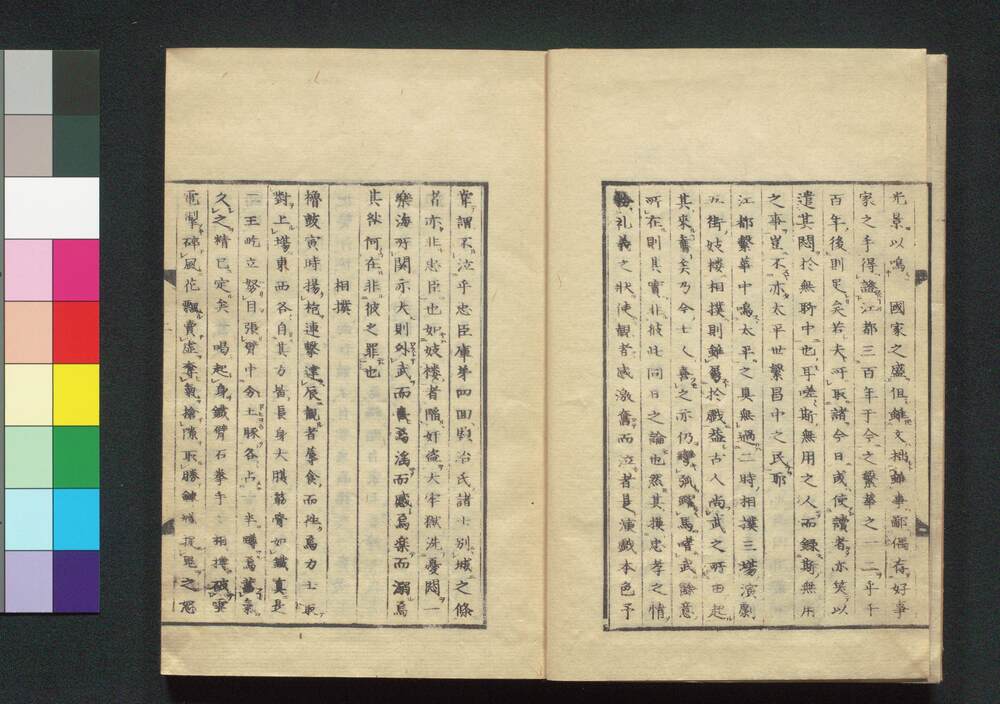 光景以鳴 國家之盛但雖文拙雖事鄙偶有好事
家之手得證江都三百年于今之繁華之一二乎千
百年後則足矣若夫所取諸今日或使讀者亦笑以
遣其悶於無聊中也耳嗟斯無用之人而錄斯無用
之事豈不亦太平世繁昌中之民耶
江都繁華中鳴太平之具無過二時相撲三場演劇
五街妓樓相撲則雖屬於戲蓋古人尚武之所由起
其來舊矣乃今士人喜之亦仍彎弧躍馬嗜武餘意
所在則其實非彼此同日之論也然其摸忠孝之情
禮義之狀使觀者感激奮而泣者是演戲本色予
嘗謂不泣乎忠臣庫第四回鹽冶氏諸士別城之條
者亦非忠臣也如妓樓者陷奸盜大牢獄洗憂悶一
樂海所關亦大則外武而喜焉淫而惑焉樂而溺焉
其咎何在非彼之罪也
相撲
櫓鼓寅時揚枹連擊達辰觀者蓐食而往焉力士取
對上場東西各自其方皆長身大腹筋骨如鐵真是
二王屹立努目張臂中分土豚各占一半蹲焉蓄氣
久之精已定矣一喝起身鐵臂石拳手手相搏破雲
電掣碎風花飄賣虛奪氣搶隙取勝鍾馗捉鬼之怒